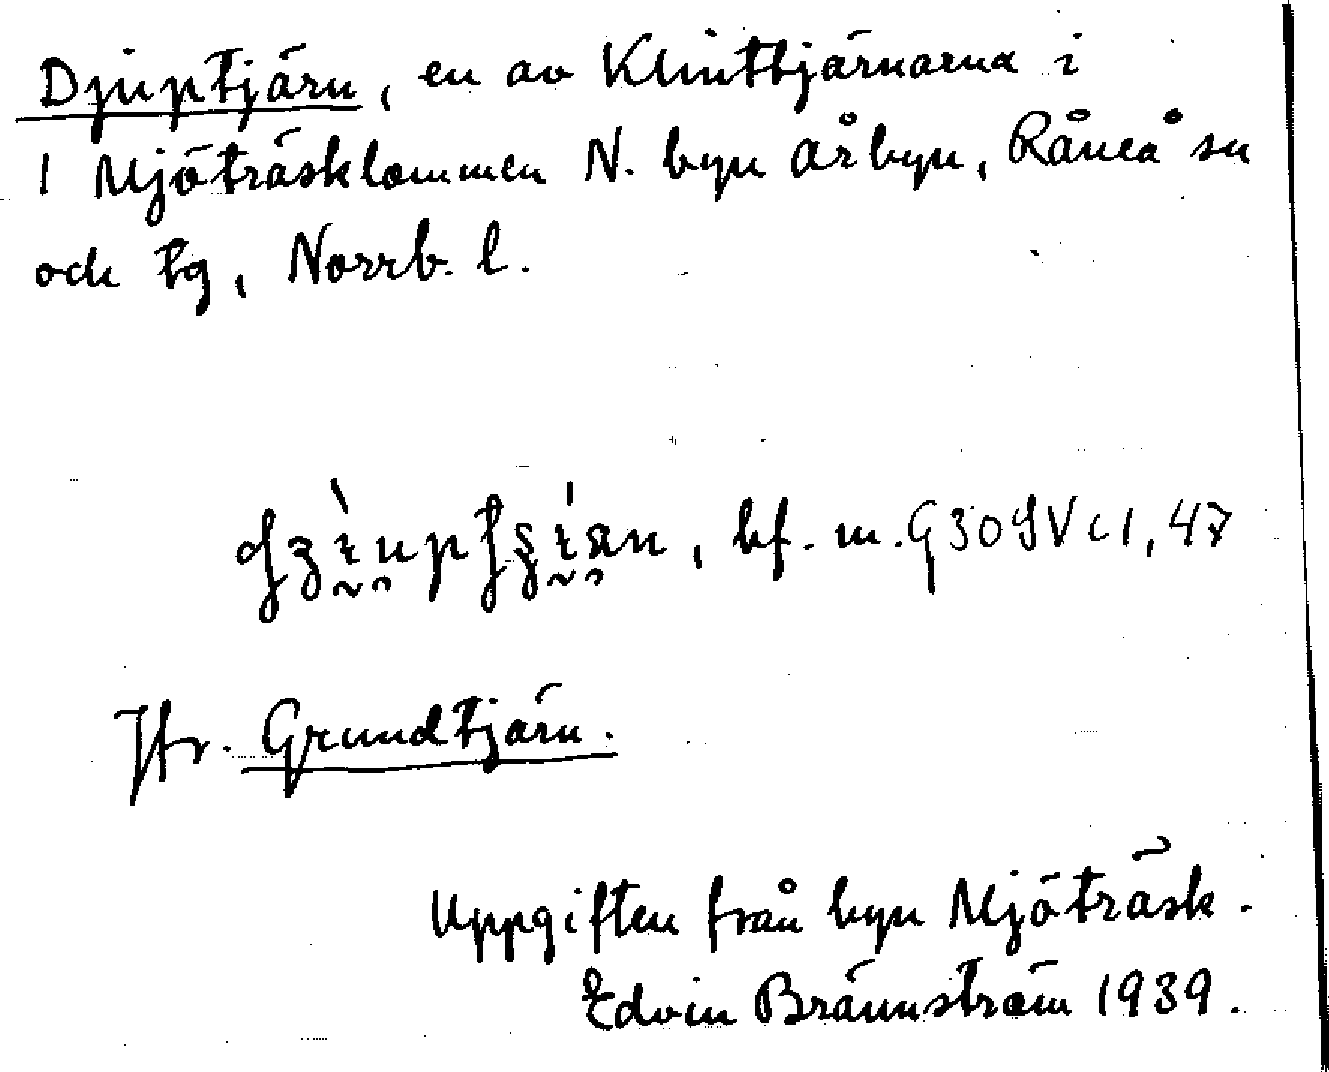 Djuptjärn, en av Klinttjärnarna i
1 Mjöträsklammen N. byn Årbyn, Råneå sn
och tg, Norrb. l.
bf. m. G30SVc1, 47
Jfr. Grundtjärn.
Uppgiften från byn Mjöträsk.
Edvin Brännström 1939.